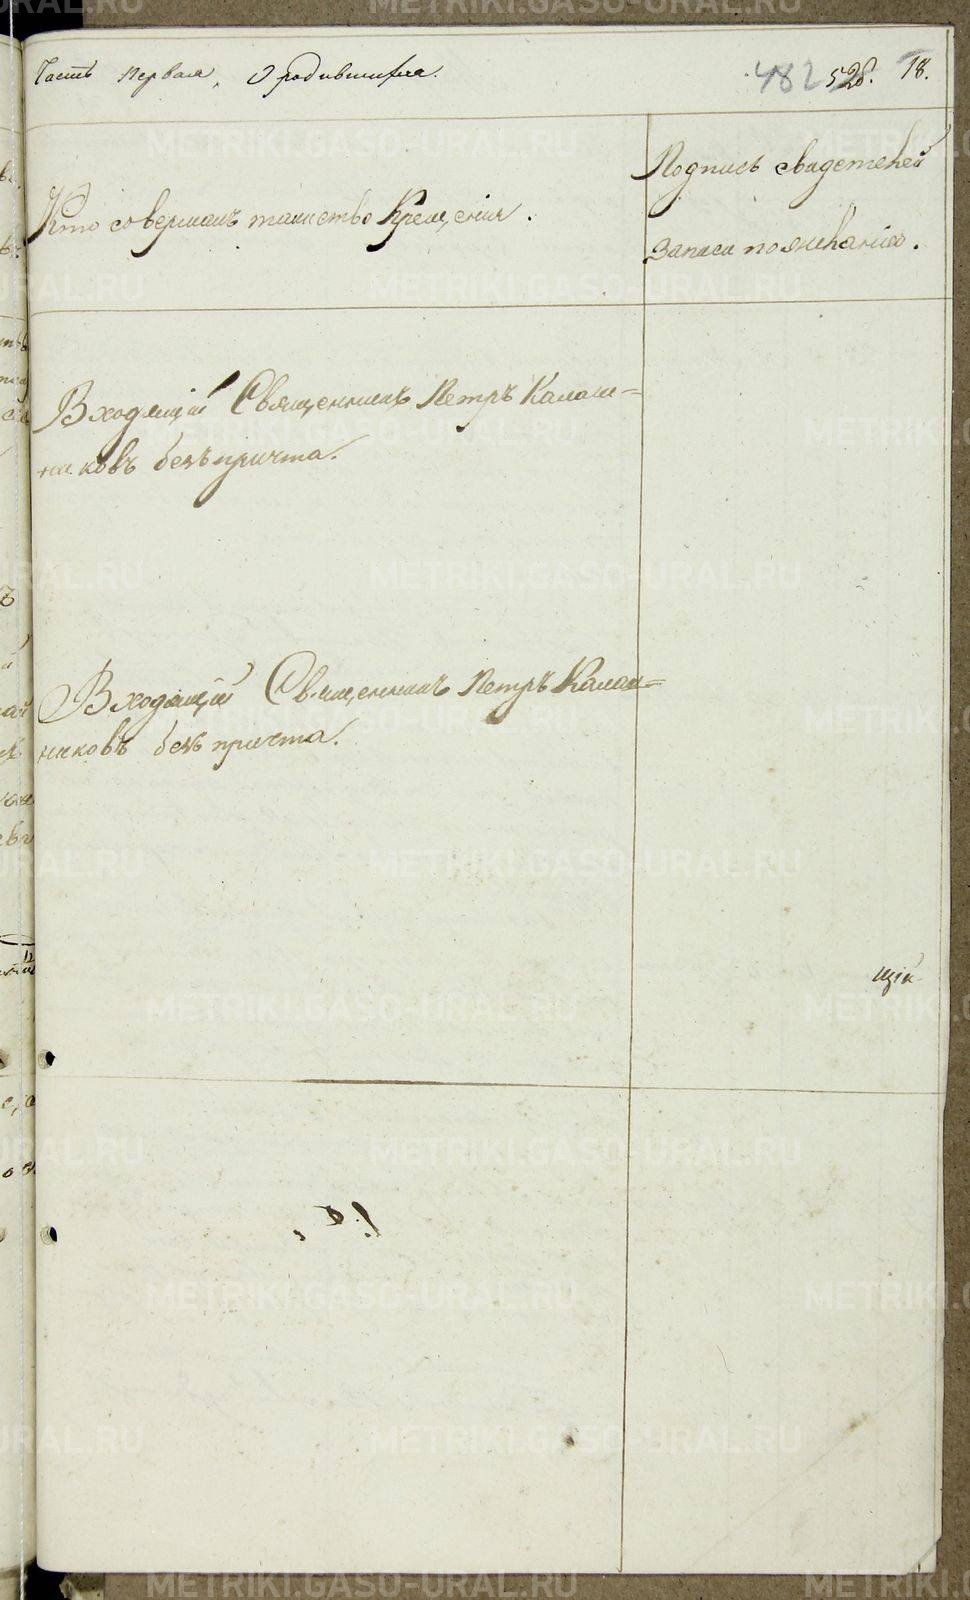 Часть первая, О родившихся.
482 528. 18.
Кто совершалъ таинство Крещенія.
Подпись свидетелей
записи по желанію.
Входящій Священникъ Петръ Калаш=
никовъ безъ причта.
Входящій Священникъ Петръ Калаш=
никовъ безъ причта.
щій
METRIKI.GASO-URAL.RU